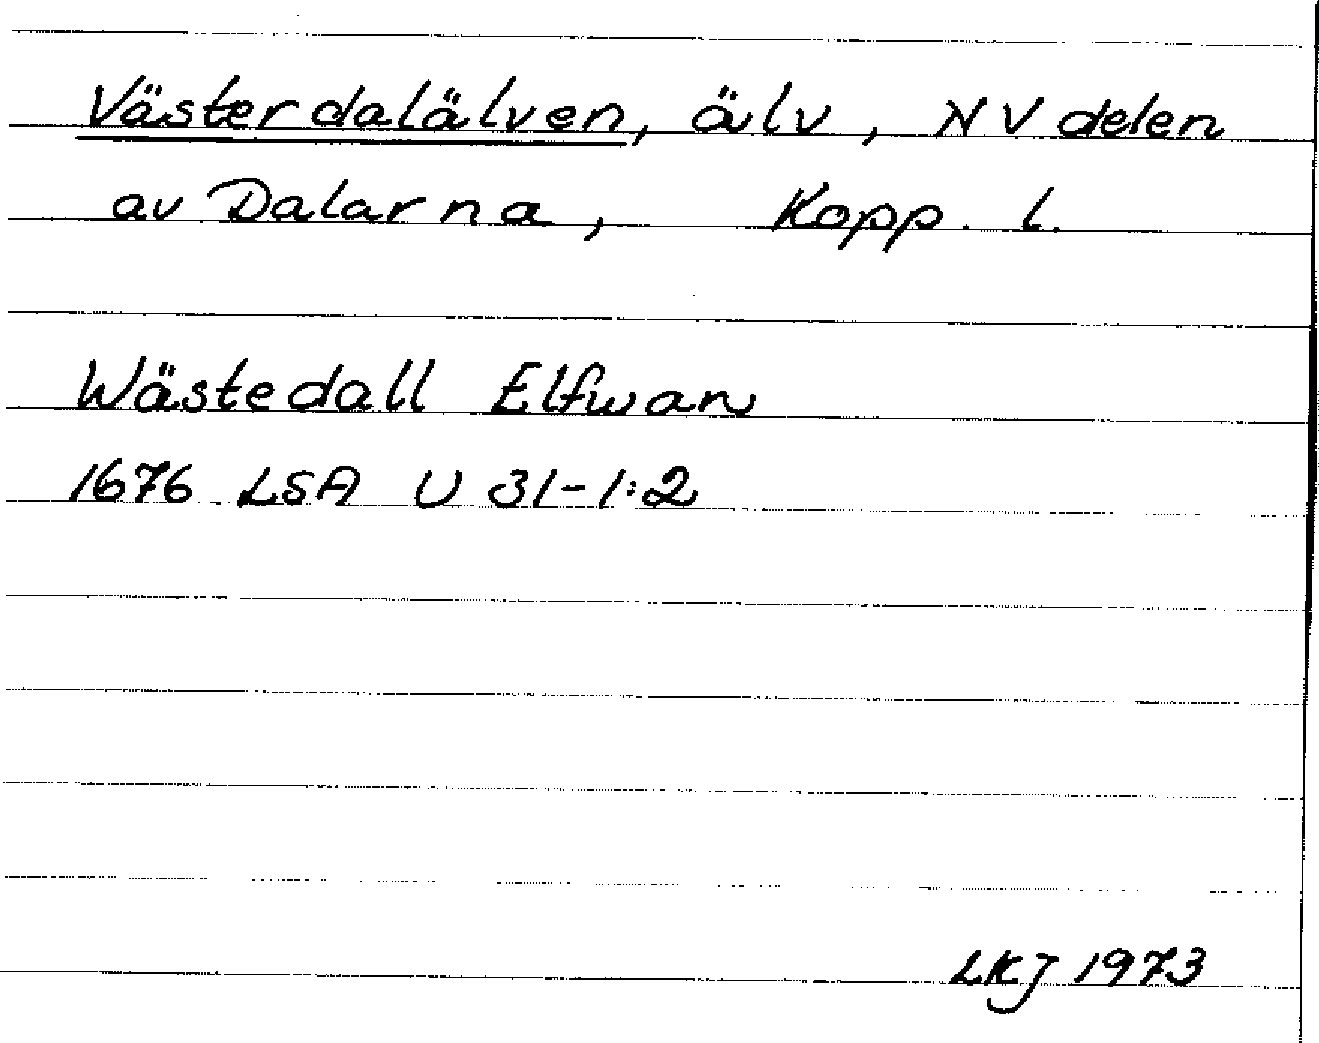 Västerdalälven, älv, NV delen
av Dalarna, Kopp. l.
Wästedall Elfwan
1676 LSA U 31-1:2
LKJ 1973